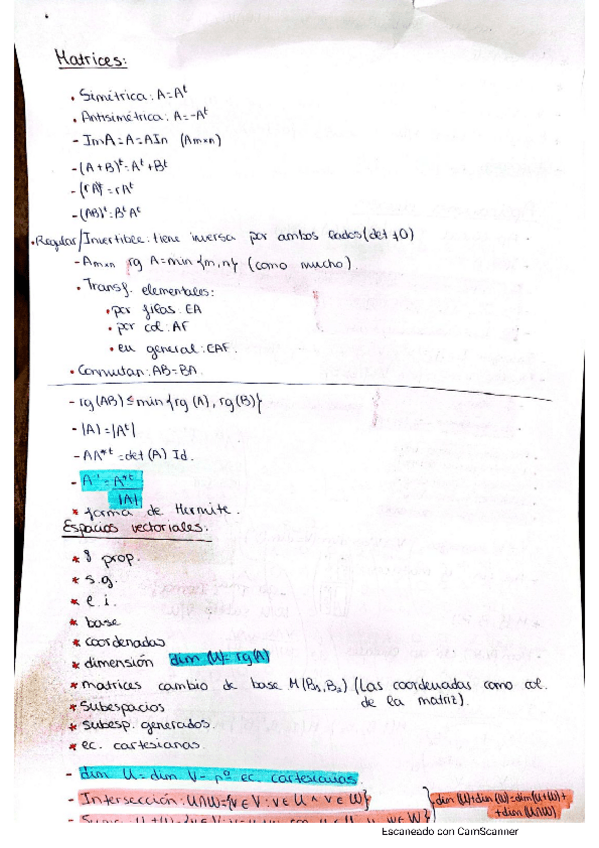 Matrices:
• Simétrica: A=Aᵗ
• Antisimétrica: A=-Aᵗ
- ImA=A=AIn (Amxn)
- (A+B)ᵗ=Aᵗ+Bᵗ
- (rA)ᵗ=rAᵗ
- (AB)ᵗ=BᵗAᵗ
• Regular/Invertible: tiene inversa por ambos lados (det≠0)
- Amxn rg A=min{m,n} (como mucho).
• Transf. elementales:
• por filas: EA
• por col: AF
• en general: EAF.
• Conmutan: AB=BA.
- rg(AB)≤min{rg(A), rg(B)}
- |A|=|Aᵗ|
- AA*ᵗ=det(A) Id.
- A⁻¹=A*ᵗ/|A|
* forma de Hermite.
Espacios vectoriales:
* 8 prop.
* s.g.
* e.i.
* base
* coordenadas
* dimensión dim (U)= rg(A)
* matrices cambio de base M(B₁,B₂) (Las coordenadas como col.
de la matriz).
* Subespacios
* subesp. generados.
* ec. cartesianas.
- dim U= dim V- nº ec. cartesianas.
- Intersección: U∩W={v∈V: v∈U ∧ v∈W}
dim(U)+dim(W)=dim(U+W)+
+dim(U∩W)
Escaneado con CamScanner